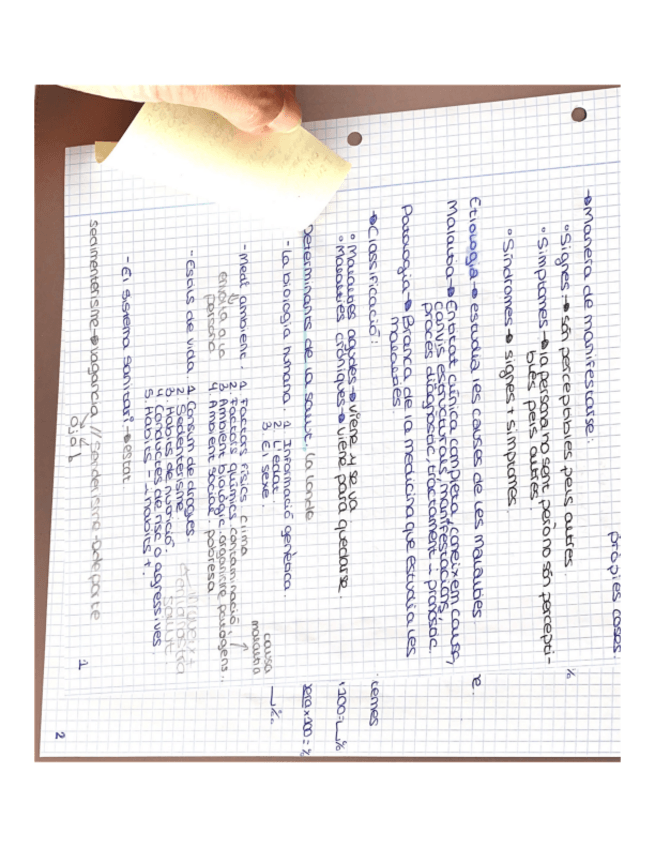 pròpies coses.
→ Manera de manifestarse:
° Signes → són perceptibles pels altres
° Símptomes → la persona no sent però no són percepti-
bles pels altres.
° Síndromes → signes + símptomes
Etiologia → estudia les causes de les malalties
Malaltia → Entitat clínica completa, coneixem causa,
canvis estructurals, manifestacions,
procés diagnòstic, tractament i pronòstic.
Patologia → Branca de la medicina que estudia les
malalties
→ Classificació:
° Malalties agudes → viene y se va.
° Malalties cròniques → viene para quedarse.
Determinants de la salut. la londe
- La biologia humana. 1 Informació genètica.
2 L'edat
3 El sexe.
- Medi ambient. 1 Factors físics clima
2 Factors químics contaminació
3 Ambient biològic organisme patogens.
4. Ambient social. pobresa
causa
malaltia
persona
- Estils de vida 1 Consum de drogues.
2 Sedenterisme
3 Hàbits de nutrició.
4 Conductes de risc o agressives
5 Hàbits - i habits +.
- El sistema sanitari → estat.
sedimenterisme → vagancia // Sedenterisme
1
e.
%
cemes
·100 = %
x100 = %
2